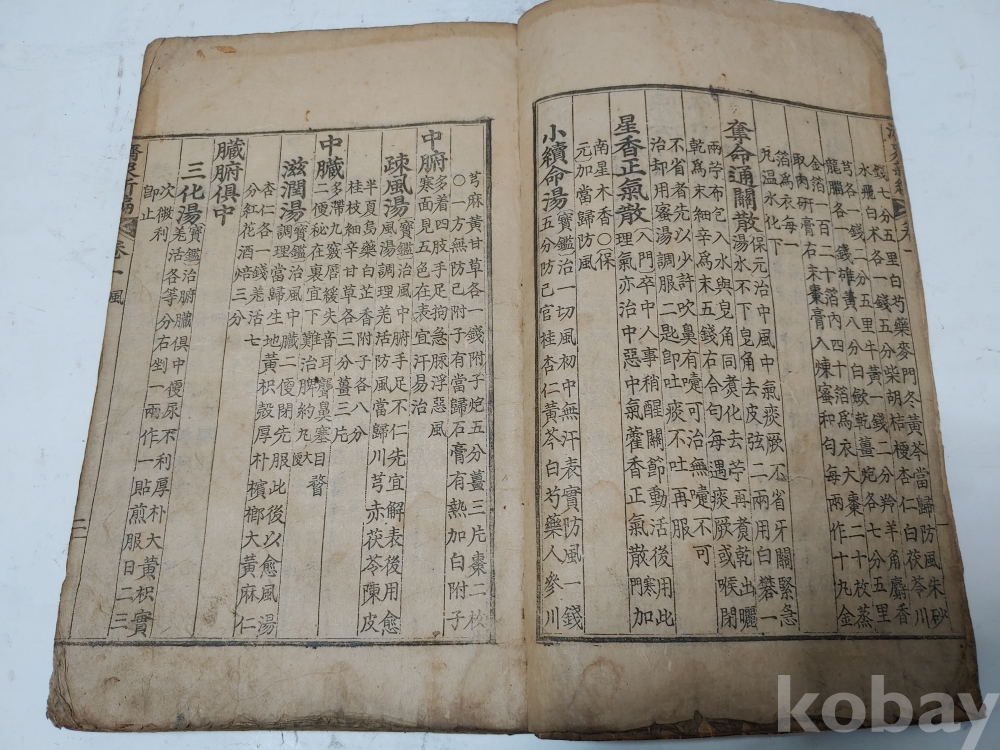 錢八分五里白芍藥麥門冬黃芩當歸防風朱砂
水飛白朮各一錢五分柴胡桔梗杏仁白茯苓川
芎各一錢二分五里牛黃一錢二分羚羊角麝香
龍腦各一錢雄黃八分白斂乾薑炮各七分五里
金箔一百二十箔內四十箔爲衣大棗二十枚蒸
取肉硏膏右末棗膏入煉蜜和勻每兩作十丸金
箔爲衣每一
丸溫水化下
奪命通關散
保元治中風中氣痰厥不省牙關緊急
湯水不下皂角去皮弦二兩用白礬一
兩苧布包入水與皂角同煑化去苧再煑乾出曬
乾爲末細辛爲末五錢右合勻每遇痰厥或喉閉
不省者先以少許吹鼻有嚔可治無嚔不可
治却用蜜湯調服二匙卽吐痰不吐再服
星香正氣散
入門卒中人事稍醒關節動活後用此
理氣亦治中惡中氣藿香正氣散門寒加
南星木香○保
元加當歸防風
小續命湯
寶鑑治一切風初中無汗表實防風一錢
五分防己官桂杏仁黃芩白芍藥人參川
芎麻黃甘草各一錢附子炮五分薑三片棗二枚
○一方無防己附子有當歸石膏有熱加白附子
中腑
多着四肢手足拘急脉浮惡風
寒面見五色在表宜汗易治
疎風湯
寶鑑治風中腑手足不仁先宜解表後用愈
風湯調理羌活防風當歸川芎赤茯苓陳皮
半夏烏藥白芷香附子各八分
桂枝細辛甘草各三分薑三片
中臟
多滯九竅唇緩失音耳聾鼻塞目瞀
二便秘在裏宜下難治脾約丸
滋潤湯
寶鑑治風中臟二便閉先服此後以愈風湯
調理當歸生地黃枳殼厚朴檳榔大黃麻仁
杏仁各一錢羌活七
分紅花酒焙三分
臟腑俱中
三化湯
寶鑑治腑臟俱中便尿不利厚朴大黃枳實
羌活各等分右剉一兩作一貼煎服日二三
次微利
卽止
濟衆新編 卷一 風
二
kobay